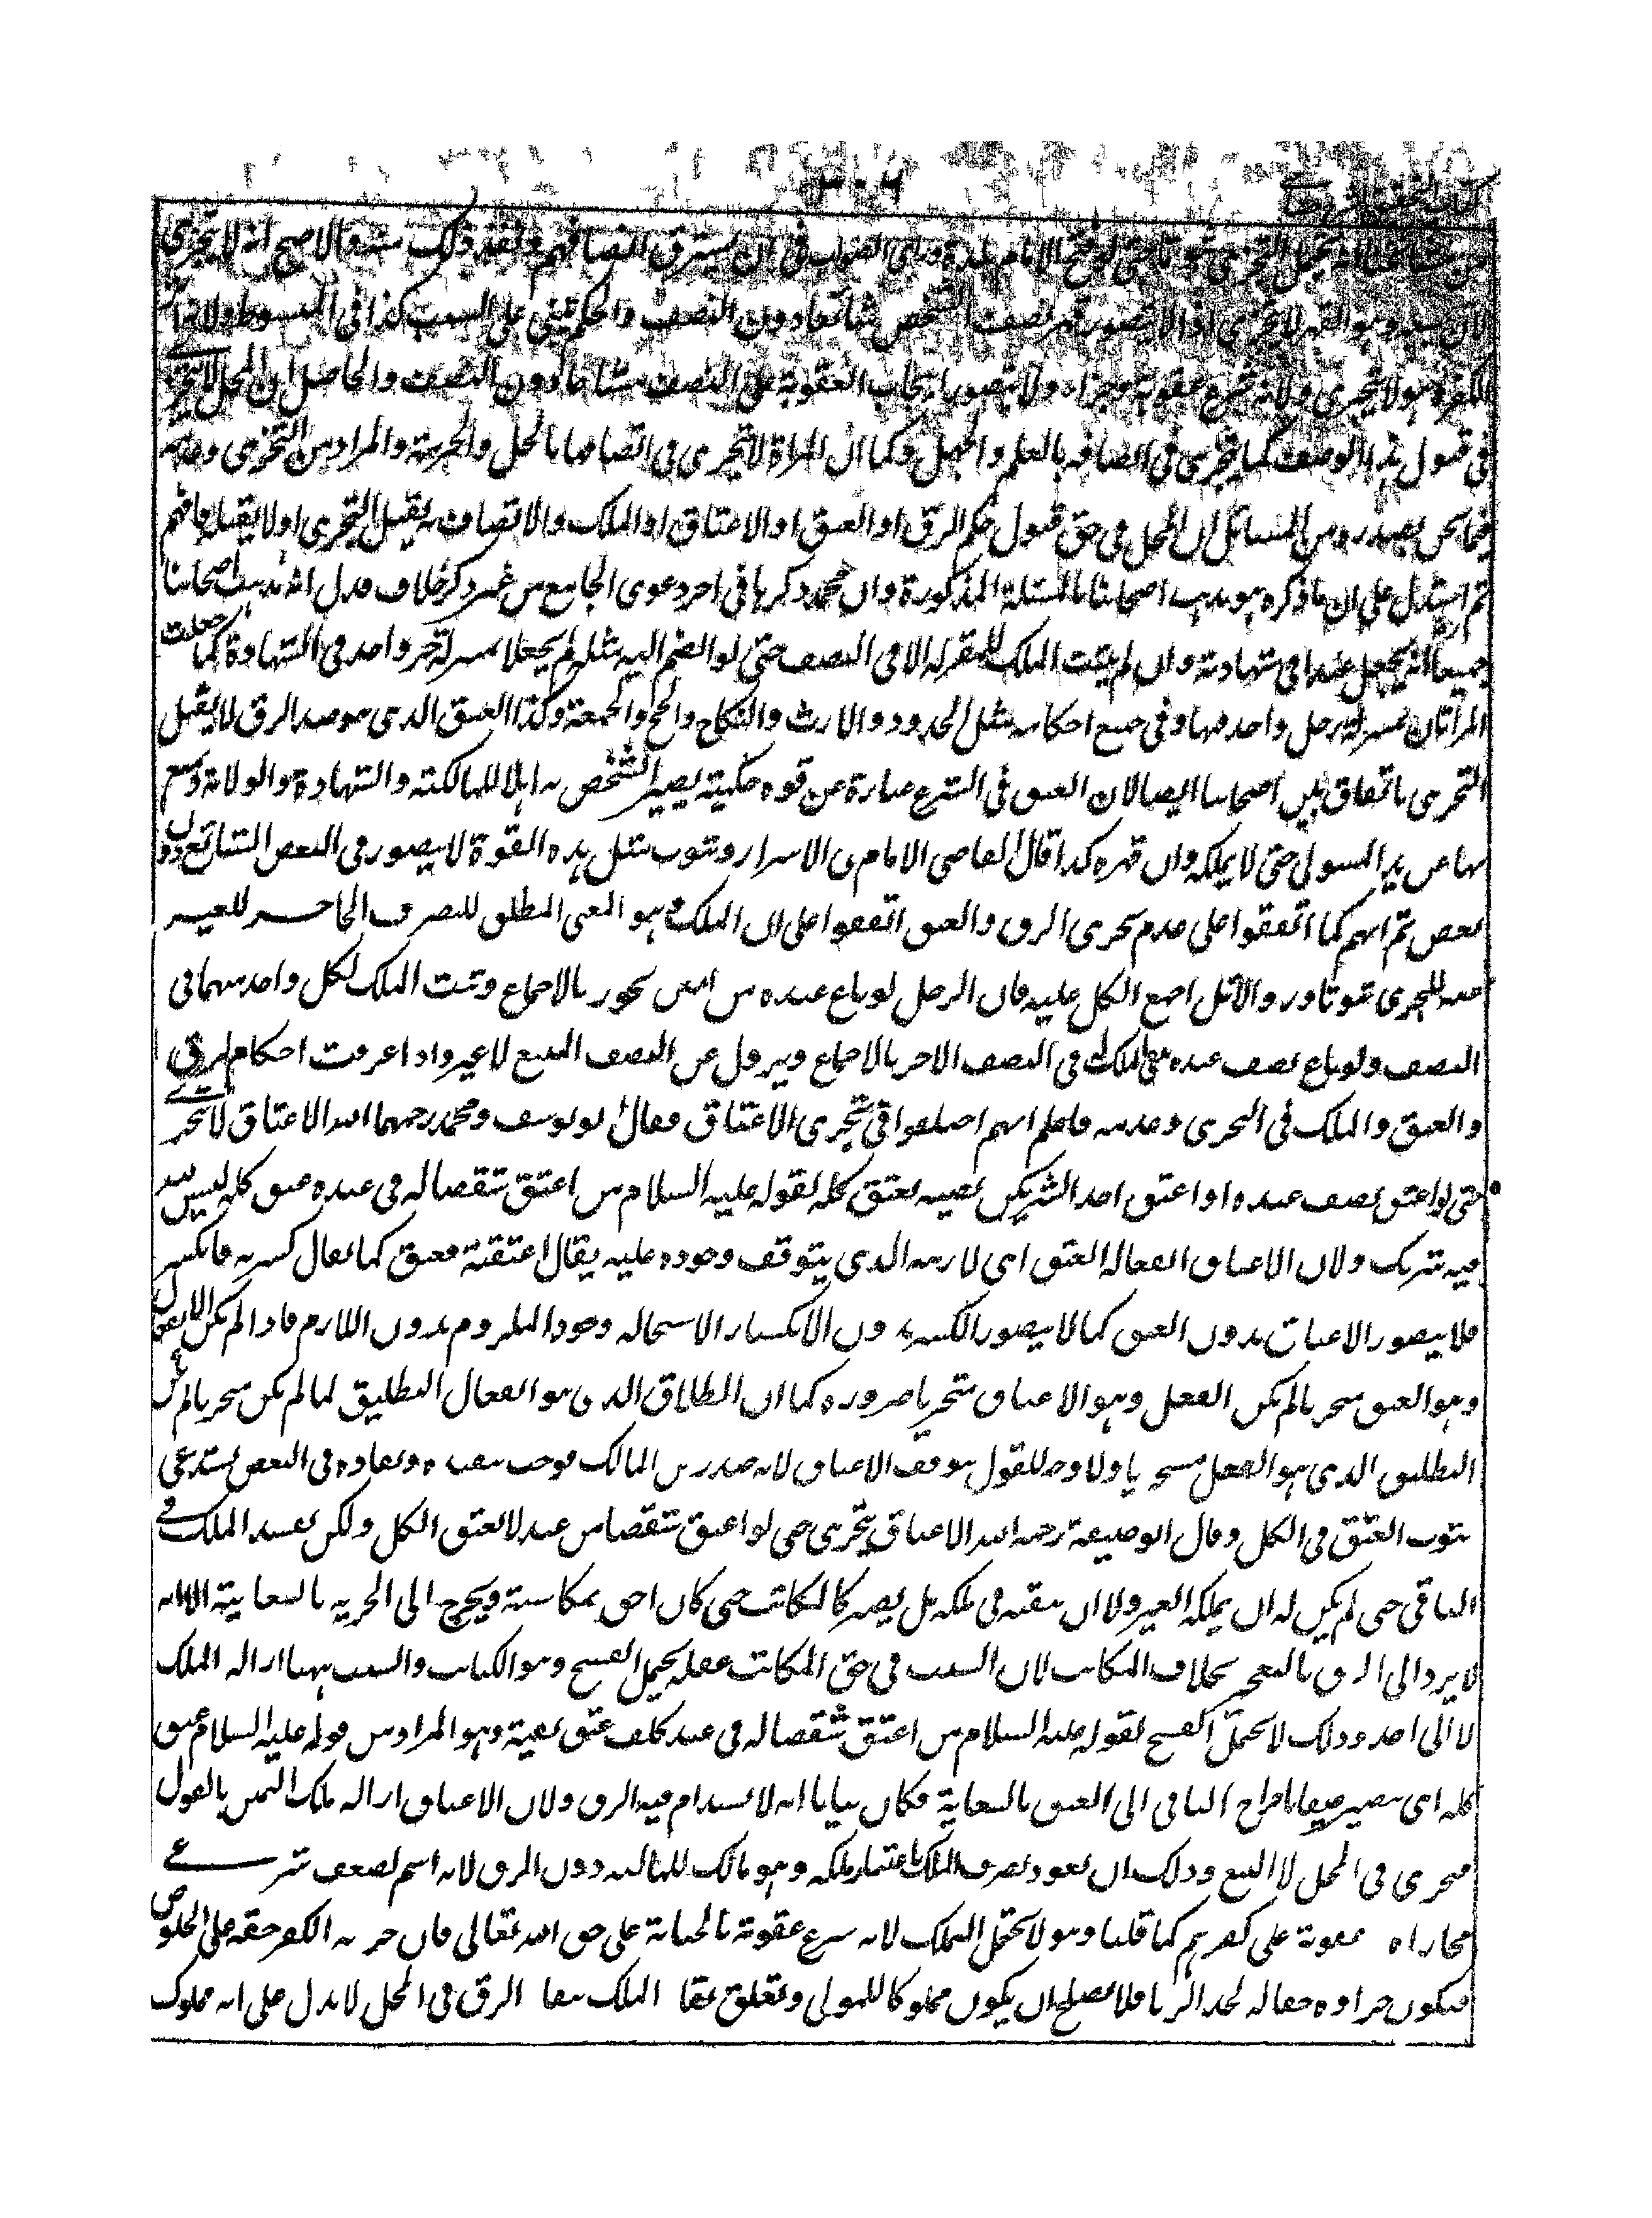 كتاب التحقيق شرح
٣٠٤
من مشايخنا انه يحتمل التجزى ثبوتا حتى لو فتح الامام بلدة وراى الصواب فى ان يسترق انصافهم ولقد ذلك منه والاصح انه لا يتجزى
لان سببه وهو القهر لا يتجزى اذ لا يتصور قهر نصف الشخص شائعا دون النصف والحكم يبنى على السبب كذا فى المبسوط ولانه اثر
الكفر وهو لا يتجزى ولانه شرع عقوبة وجزاء ولا يتصور ايجاب العقوبة على النصف مشاعا دون النصف والحاصل ان المحل لا يتجزى
فى قبول هذا الوصف كما لا يتجزى فى اتصافه بالعلم والجهل وكما ان المراة لا تتجزى فى اتصافها بالحل والحرمة والمراد من التجزى وعدمه
فيما نحن بصدده من المسائل ان المحل فى حق قبول حكم الرق او العتق او الاعتاق او الملك والاتصاف به يقبل التجزى او لا يقبل فافهم
ثم استدل على ان ما ذكره هو مذهب اصحابنا بالمسئلة المذكورة وان محمدا ذكرها فى اخر دعوى الجامع من غير ذكر خلاف فدل انه مذهب اصحابنا
جميعا انه يجعل عبدا فى شهادته وان لم يثبت الملك للمقر له الا فى النصف حتى لو انضم اليه مثله لم يجعلا بمنزلة حر واحد فى الشهادة كما جعلت
المرأتان بمنزلة رجل واحد فيها وفى جميع احكامه مثل الحدود والارث والنكاح والحج والجمعة وكذا العتق الذى هو ضد الرق لا يقبل
التجزى باتفاق بين اصحابنا ايضا لان العتق فى الشرع عبارة عن قوة حكمية يصير الشخص به اهلا للمالكية والشهادة والولاية ويمتنع
بها عن يد المستولى حتى لا يملكه وان قهره كذا قال القاضى الامام فى الاسرار وثبوت مثل هذه القوة لا يتصور فى البعض الشائع دون
بعض ثم انهم كما اتفقوا على عدم تجزى الرق والعتق اتفقوا على ان الملك وهو المعنى المطلق للتصرف الحاجز للغير
عنه للتجزى ثبوتا وزوالا اجمع الكل عليه فان الرجل لو باع عبده من اثنين يجوز بالاجماع ويثبت الملك لكل واحد منهما فى
النصف ولو باع نصف عبده يبقى الملك له فى النصف الاخر بالاجماع ويزول عن النصف المبيع لا غير واذا عرفت احكام الرق
والعتق والملك فى التجزى وعدمه فاعلم انهم اختلفوا فى تجزى الاعتاق فقال ابو يوسف ومحمد رحمهما الله الاعتاق لا يتجزى
حتى لو اعتق نصف عبده او اعتق احد الشريكين نصيبه يعتق كله لقوله عليه السلام من اعتق شقصا له فى عبده عتق كله ليس لله
فيه شريك ولان الاعتاق انفعاله العتق اى لازمه الذى يتوقف وجوده عليه يقال اعتقته فعتق كما يقال كسرته فانكسر
فلا يتصور الاعتاق بدون العتق كما لا يتصور الكسر بدون الانكسار لاستحالة وجود الملزوم بدون اللازم فاذا لم يكن الانفعال
وهو العتق متجزيا لم يكن الفعل وهو الاعتاق متجزيا ضرورة كما ان الطلاق الذى هو انفعال التطليق لما لم يكن متجزيا لم يكن
التطليق الذى هو الفعل متجزيا ولا وجه للقول بتوقف الاعتاق لانه صدر من المالك فوجب تنفيذه ونفاذه فى البعض يستدعى
ثبوت العتق فى الكل وقال ابو حنيفة رحمه الله الاعتاق يتجزى حتى لو اعتق شقصا من عبد لا يعتق الكل ولكن يفسد الملك فى
الباقى حتى لم يكن له ان يملكه الغير ولا ان يبقيه فى ملكه بل يصير كالمكاتب حتى كان احق بمكاسبه ويخرج الى الحرية بالسعاية الا انه
لا يرد الى الرق بالعجز بخلاف المكاتب لان السبب فى حق المكاتب عقد يحتمل الفسخ وهو الكتابة والسبب ههنا ازالة الملك
لا الى احد وذلك لا يحتمل الفسخ لقوله عليه السلام من اعتق شقصا له فى عبد كلف عتق بقيته وهو المراد من قوله عليه السلام عتق
كله اى سيصير عتيقا باخراج الباقى الى العتق بالسعاية فكان بيانا انه لا يستدام فيه الرق ولان الاعتاق ازالة ملك اليمين بالقول
فيتجزى فى المحل كالبيع وذلك ان نفوذ تصرف المالك باعتبار ملكه وهو مالك للمالية دون الرق لانه اسم لضعف شرعى
مجازاة عقوبة على كفرهم كما قلنا وهو لا يحتمل التملك لانه شرع عقوبة بالجناية على حق الله تعالى فان حرمة الكفر حقه على الخلوص
فيكون جزاؤه حقا له كحد الزنا فلا يصلح ان يكون مملوكا للمولى وتعلق بقاء الملك ببقاء الرق فى المحل لا يدل على انه مملوك